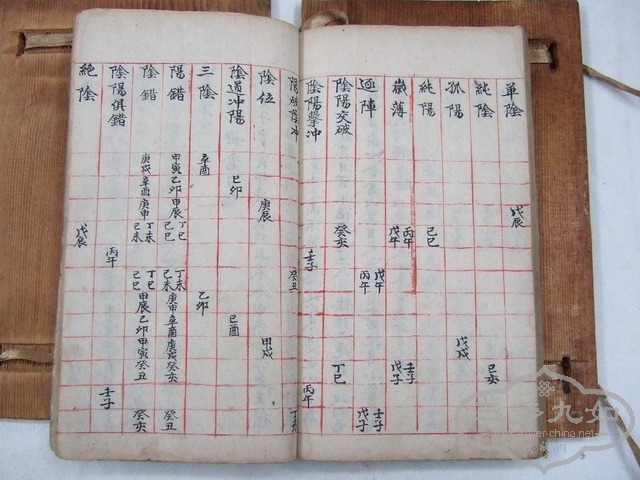 單陰 戊辰
純陰 己亥
孤陽 戊戌
純陽 己巳
歲薄 丙午 戊午 壬子 戊子
逐陣 戊午 丙午 壬子 戊子
陰陽交破 癸亥 丁巳
陰陽擊冲 壬子 丙午
陽破陰冲 癸丑 丁未
陰位 庚辰 甲戌
陰道冲陽 己卯 己酉
三陰 辛酉 乙卯
陽錯 甲寅 乙卯 甲辰 丁巳 己巳 丁未 己未 庚申 辛酉 庚戌 癸亥 癸丑
陰錯 庚戌 辛酉 庚申 丁未 己未 丁巳 己巳 甲辰 乙卯 甲寅 癸丑 癸亥
陰陽俱錯 丙午 壬子
絕陰 戊辰